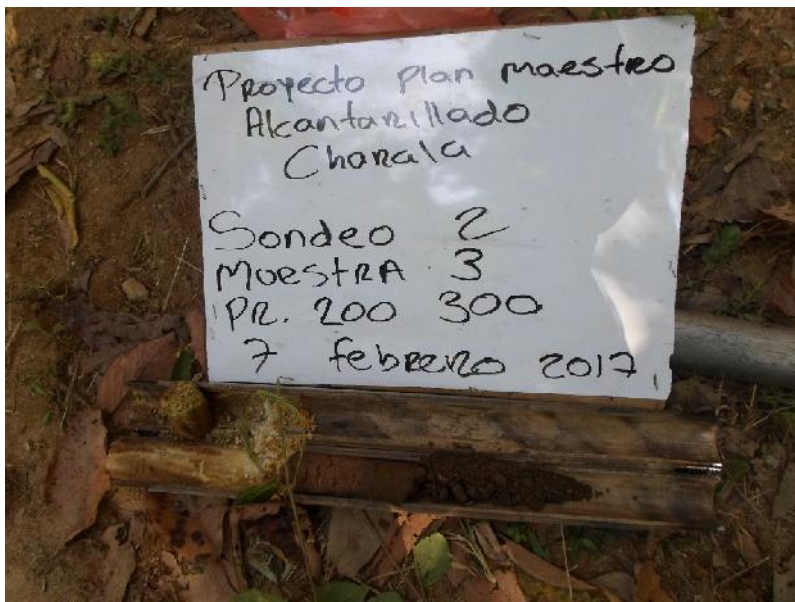 Proyecto plan maestro
Alcantarillado
Charala
Sondeo 2
Muestra 3
PR. 200 300
7 febrero 2017